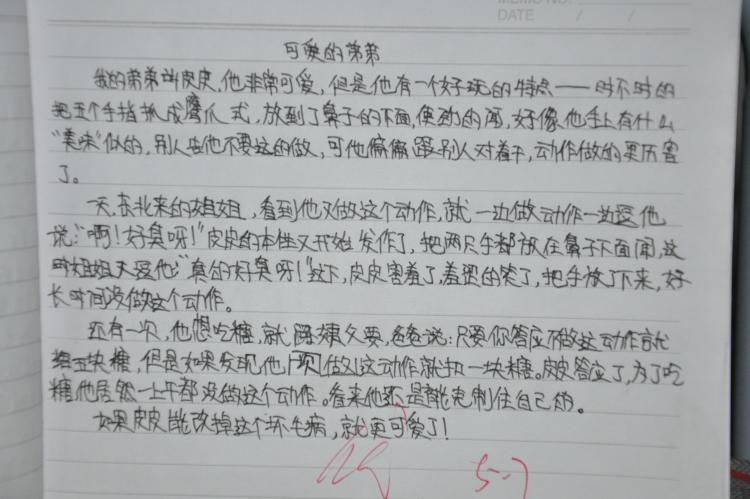 MEMO NO.
DATE / /
可爱的弟弟
我的弟弟叫皮皮,他非常可爱,但是他有一个好玩的特点——时不时的
把五个手指抓成鹰爪式,放到了鼻子的下面,使劲的闻,好像他手上有什么
“美味”似的,别人告他不要这的做,可他偏偏跟别人对着干,动作做的更历害
了。
一天,东北来的姐姐,看到他又做这个动作,就一边做动作一边逗他
说:“啊!好臭呀!”皮皮的本性又开始发作了,把两只手都放在鼻子下面闻,这
时姐姐又逗他:“真的好臭呀!”这下,皮皮害羞了,羞涩的笑了,把手放了下来,好
长时间没做这个动作。
还有一次,他想吃糖,就跟爸爸要,爸爸说:只要你答应不做这动作就
给五块糖,但是如果发现他做这动作就扣一块糖。皮皮答应了,为了吃
糖他居然一上午都没做这个动作。看来他还是能克制住自己的。
如果皮皮能改掉这个坏毛病,就更可爱了!
5-7